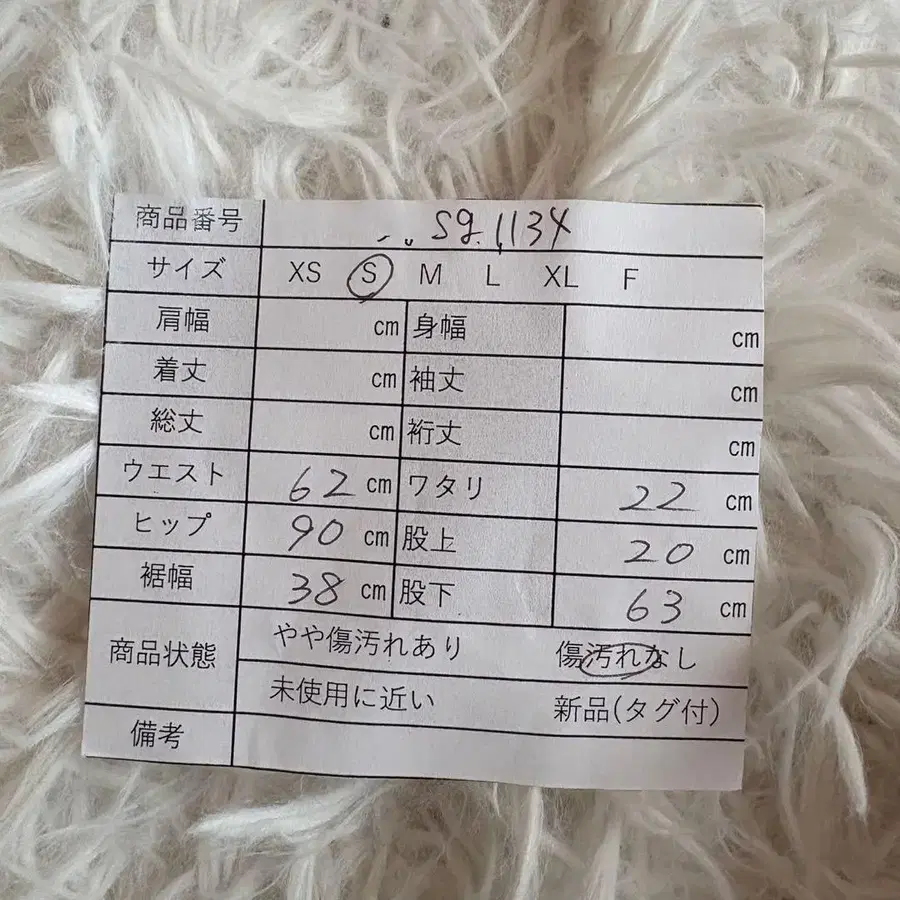 商品番号 sg.1134
サイズ XS S M L XL F
肩幅 cm 身幅 cm
着丈 cm 袖丈 cm
総丈 cm 裄丈 cm
ウエスト 62 cm ワタリ 22 cm
ヒップ 90 cm 股上 20 cm
裾幅 38 cm 股下 63 cm
商品状態 やや傷汚れあり 傷汚れなし
未使用に近い 新品(タグ付)
備考